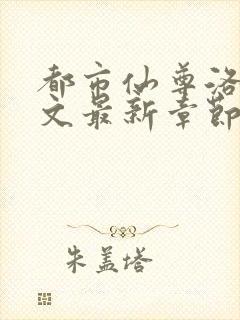 都市仙尊洛
文最新章节
朱盖塔